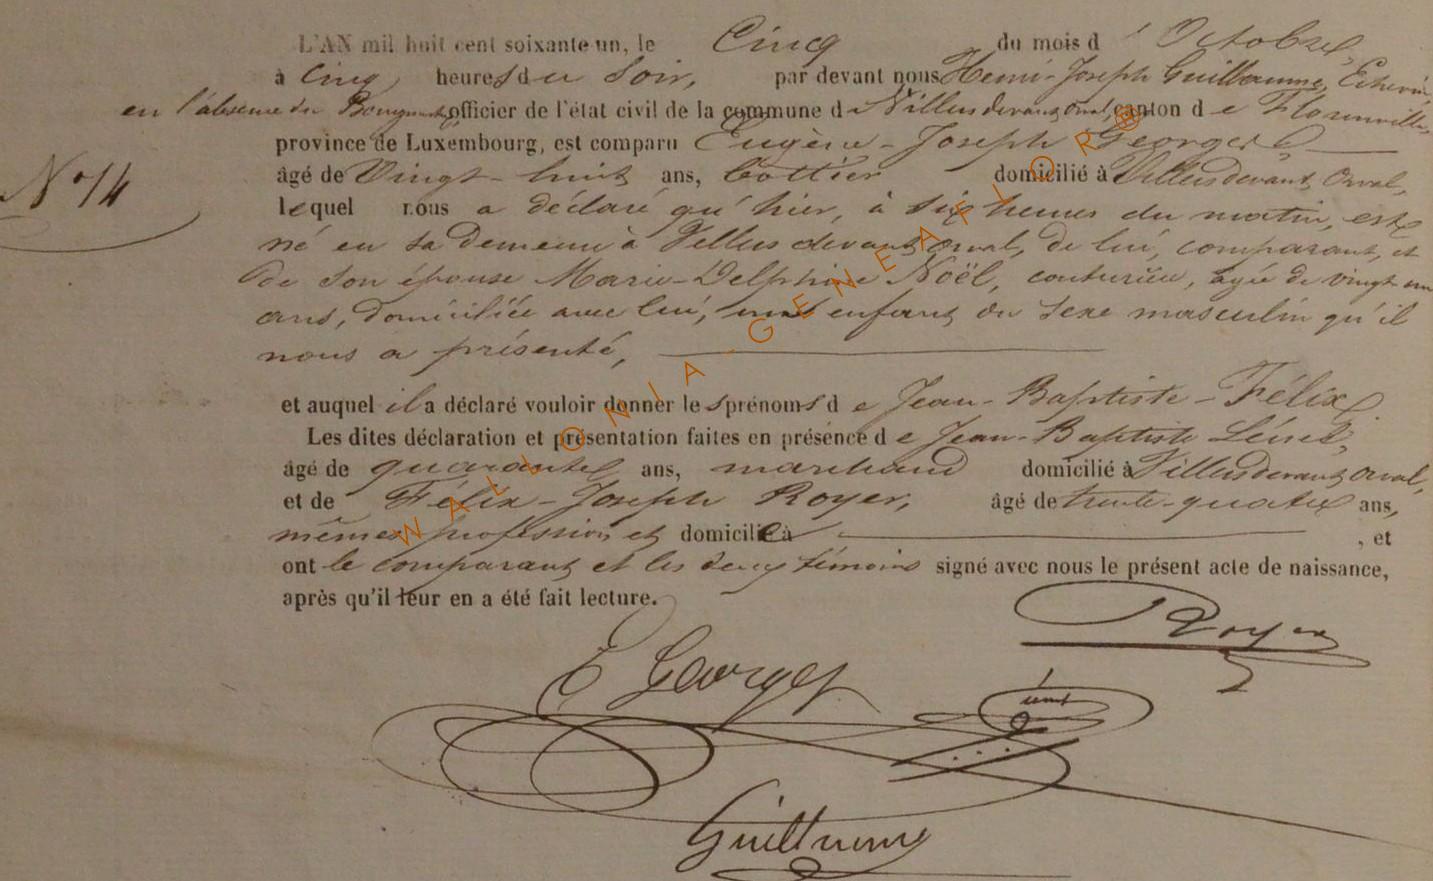 L'AN mil huit cent soixante un, le Cinq du mois d' Octobre,
à Cinq heures du Soir, par devant nous Henri-Joseph Guillaume, Echevin,
en l'absence du Bourgmestre, officier de l'état civil de la commune de Villers devant Orval, canton de Florenville,
province de Luxembourg, est comparu Eugène-Joseph Georges
N° 14
âgé de Vingt-huit ans, Cottier domicilié à Villers devant Orval,
lequel nous a déclaré qu'hier, à six heures du matin, est
né en sa demeure à Villers devant Orval, de lui, comparant, et
de son épouse Marie-Delphine Noël, couturière, agée de vingt un
ans, domiciliée avec lui, un enfant du sexe masculin qu'il
nous a présenté,
et auquel il a déclaré vouloir donner les prénoms de Jean-Baptiste-Félix.
Les dites déclaration et présentation faites en présence de Jean-Baptiste
âgé de quarante ans, marchand domicilié à Villers devant Orval,
et de Félix-Joseph Royer, âgé de trente-quatre ans,
même profession et domicile à , et
ont le comparant et les deux témoins signé avec nous le présent acte de naissance,
après qu'il leur en a été fait lecture.
Royer
E Georges
Guillaume
WALLONIA-GENEAFLOR®